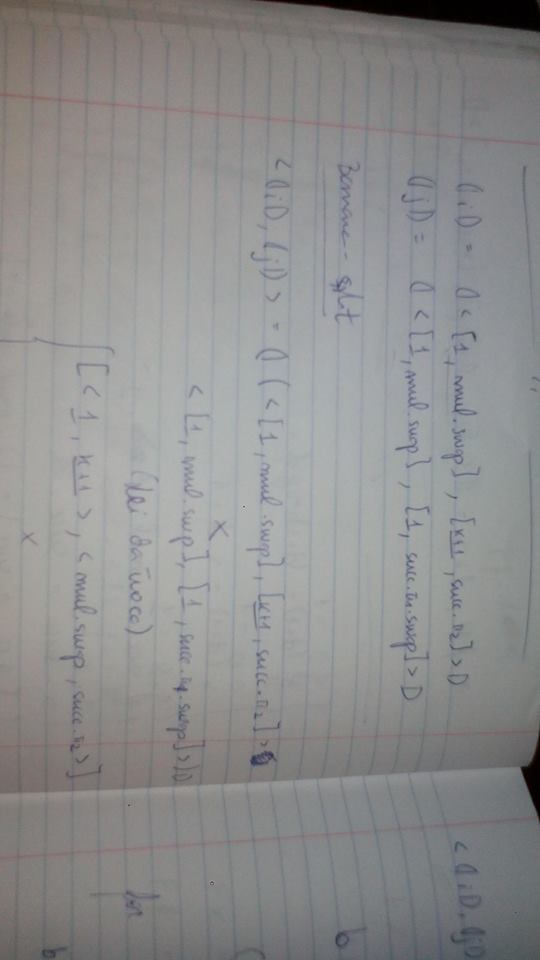 (|i|) = (| < [1, mul.swap] , [k+1 , succ.π₂] > |)
(|j|) = (| < [1, mul.swap] , [1, succ.π₁.swap] > |)
< (|i|), (|j|)
b
< (|i|), (|j|) > = (| ( < [1, mul.swap] , [k+1 , succ.π₂] >
×
< [1, mul.swap], [1 , succ.π₁.swap] > ) |)
(lei da troca)
[ < 1 , k+1 > , < mul.swap , succ.π₂ > ]
b
×